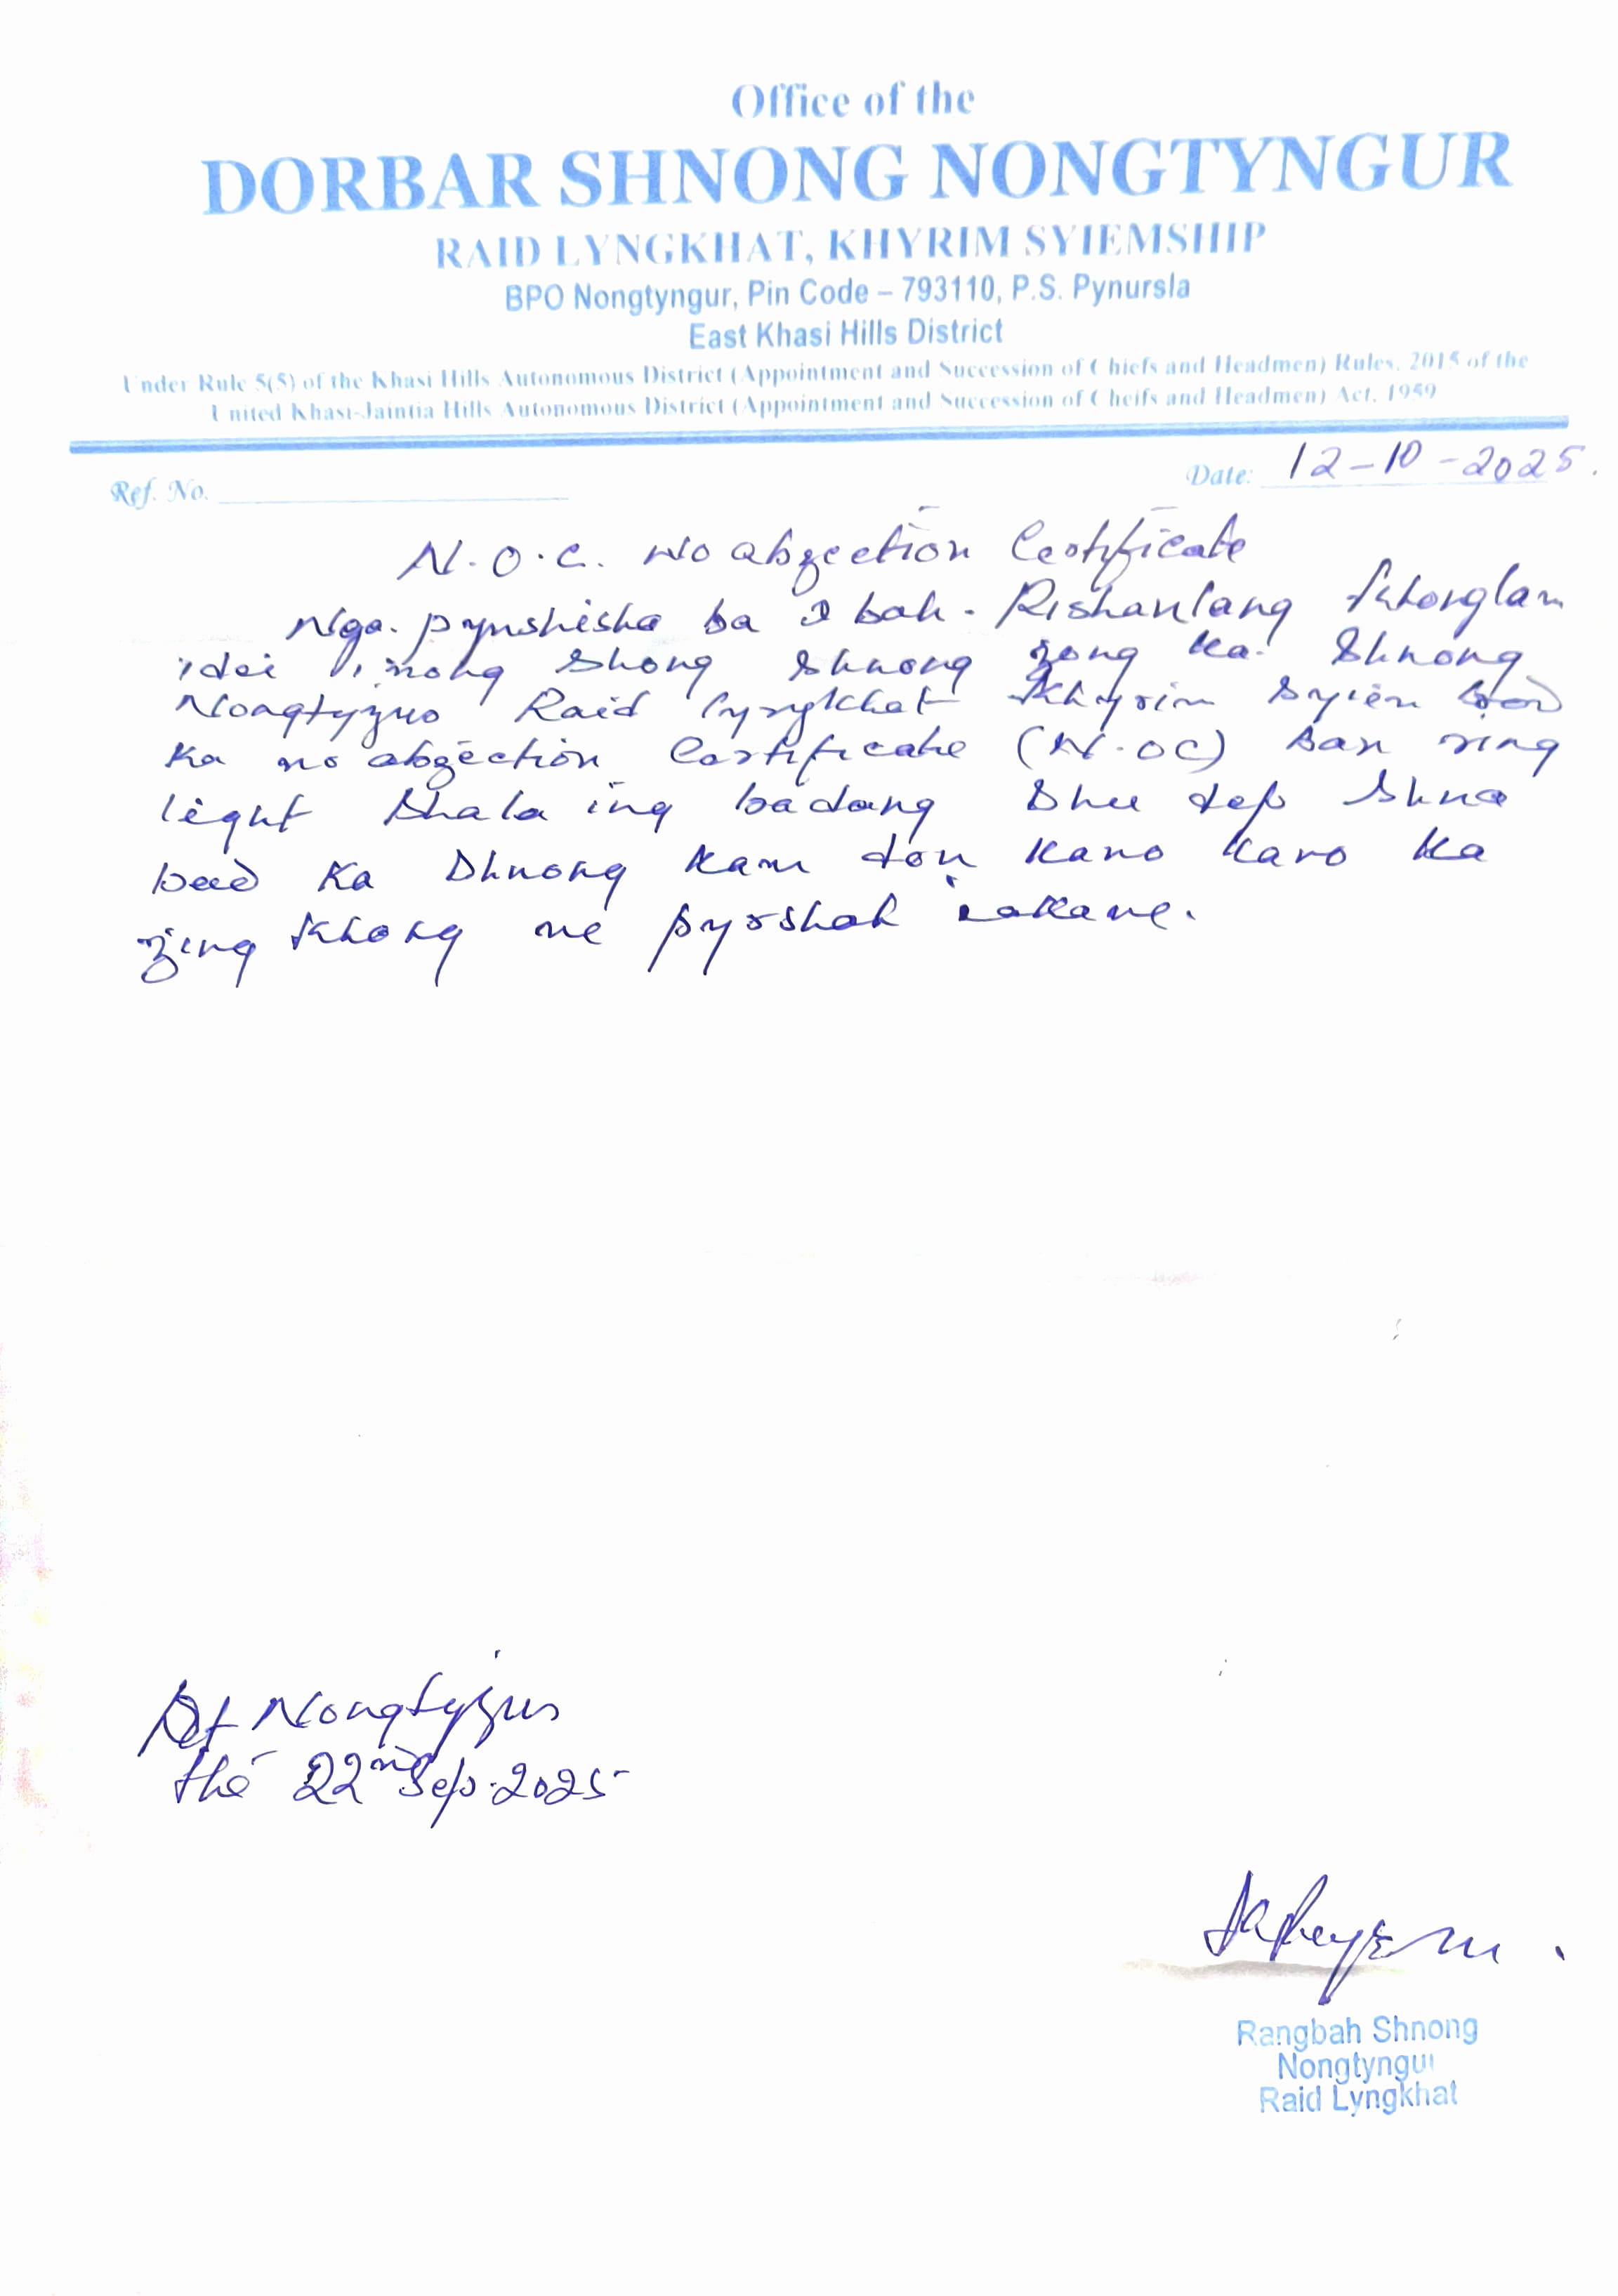 Office of the
DORBAR SHNONG NONGTYNGUR
RAID LYNGKHAT, KHYRIM SYIEMSHIP
BPO Nongtyngur, Pin Code – 793110, P.S. Pynursla
East Khasi Hills District
Under Rule 5(5) of the Khasi Hills Autonomous District (Appointment and Succession of Chiefs and Headmen) Rules, 2015 of the
United Khasi-Jaintia Hills Autonomous District (Appointment and Succession of Cheifs and Headmen) Act, 1959
Ref. No.
Date: 12-10-2025.
N.O.C. no abjection Certificate
Nga. pynshisha ba I bah. Rishanlang Khonglam
idei i nong shong shnong jong ka. Shnong
Raid lyngkhat Khyrim Syiem bad
ka no abjection Certificate (N.OC) ban ring
light sha la ing badang shu dep shna
bad Ka Shnong kam don kano kano ka
jing khang ne pyrshah iakane.
the 22nd Sep. 2025
Rangbah Shnong
Nongtyngur
Raid Lyngkhat